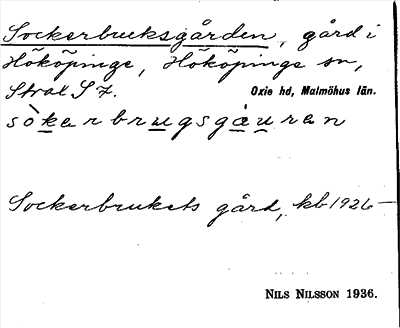 Sockerbruksgården, gård i
Hököpinge, Hököpinge sn,
Oxie hd, Malmöhus län.
sòkarbrugsgauran
Sockerbrukets gård, kb 1926-
NILS NILSSON 1936.